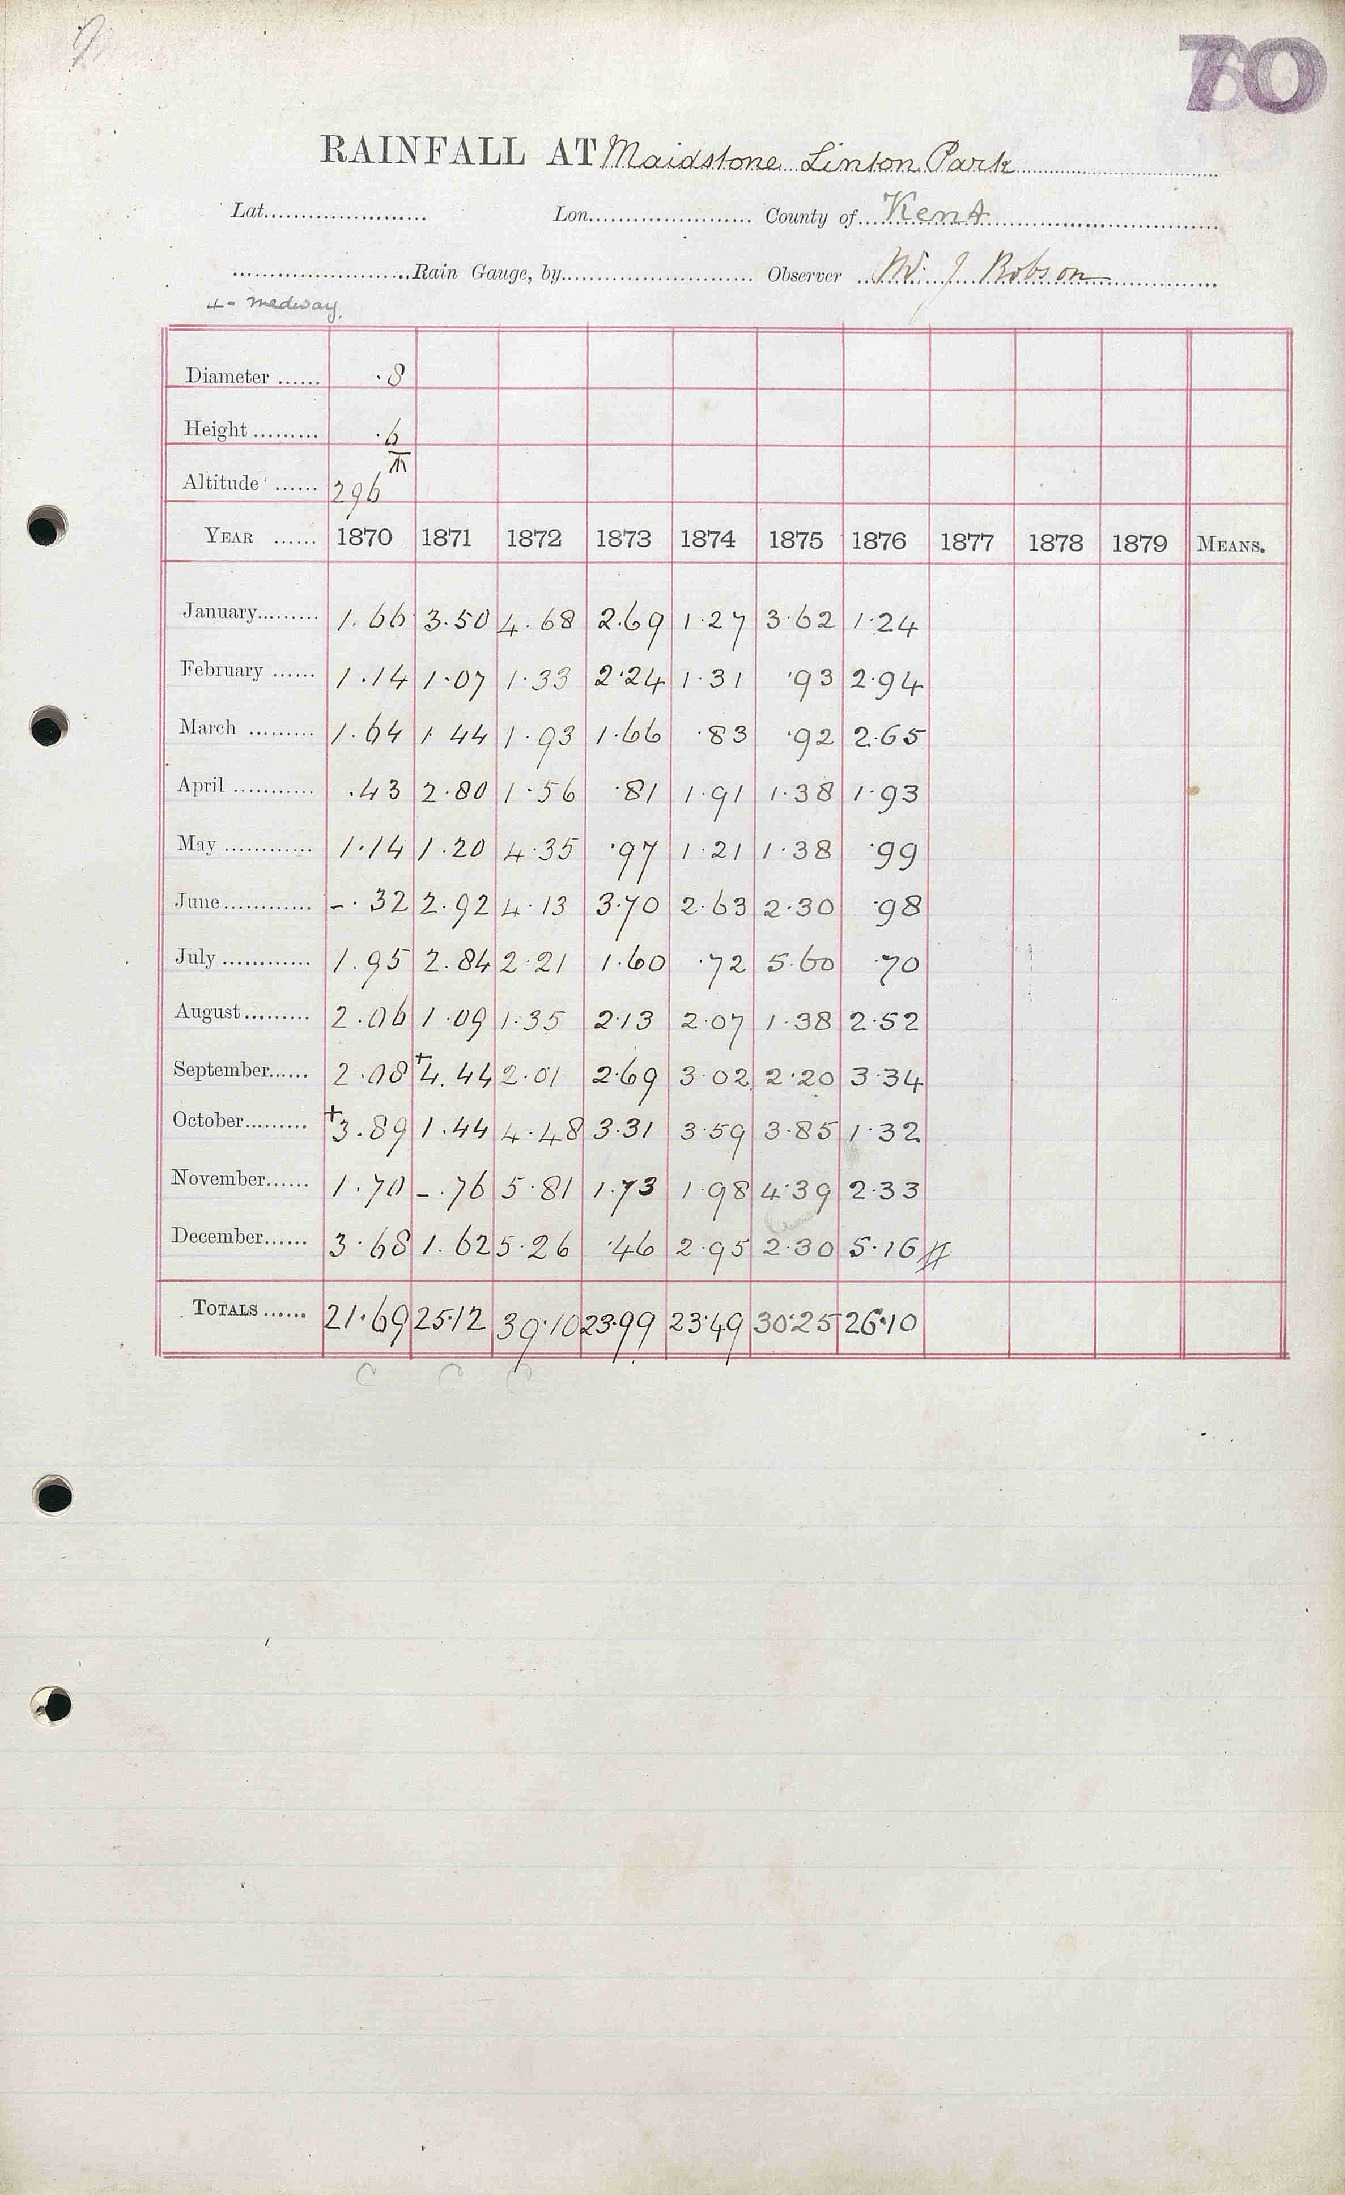 70
RAINFALL AT Maidstone Linton Park
Lat. Lon. County of Kent
Rain Gauge, by Observer W. J. Robson
4 - Medway.
Diameter ...... .8
Height ......... .6
Altitude ...... 296
YEAR ...... 1870 1871 1872 1873 1874 1875 1876 1877 1878 1879 MEANS.
January......... 1.66 3.50 4.68 2.69 1.27 3.62 1.24
February ...... 1.14 1.07 1.33 2.24 1.31 .93 2.94
March ......... 1.64 1.44 1.93 1.66 .83 .92 2.65
April ........... .43 2.80 1.56 .81 1.91 1.38 1.93
May ............ 1.14 1.20 4.35 .97 1.21 1.38 .99
June............ -.32 2.92 4.13 3.70 2.63 2.30 .98
July ............ 1.95 2.84 2.21 1.60 .72 5.60 .70
August......... 2.06 1.09 1.35 2.13 2.07 1.38 2.52
September...... 2.08 +4.44 2.01 2.69 3.02 2.20 3.34
October......... +3.89 1.44 4.48 3.31 3.59 3.85 1.32
November...... 1.70 -.76 5.81 1.73 1.98 4.39 2.33
December...... 3.68 1.62 5.26 .46 2.95 2.30 5.16
TOTALS ...... 21.69 25.12 39.10 23.99 23.49 30.25 26.10
C C C